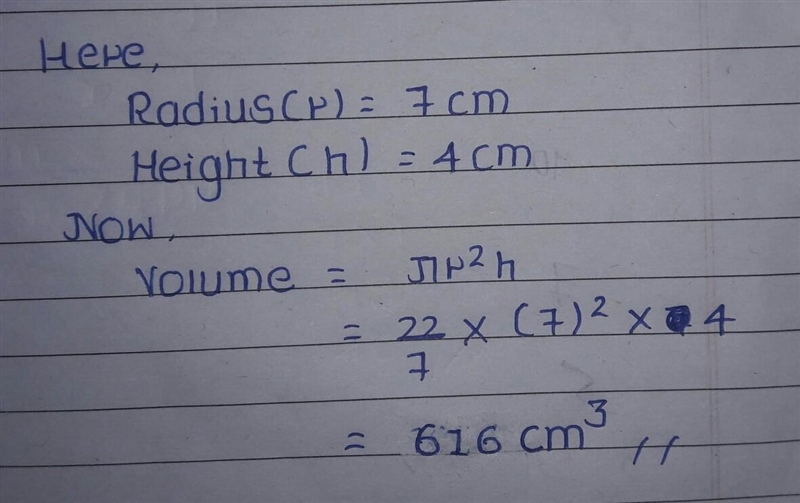 Here,
Radius(r) = 7 cm
Height(h) = 4 cm
Now,
Volume = πr²h
= 22/7 × (7)² × 4
= 616 cm³ //